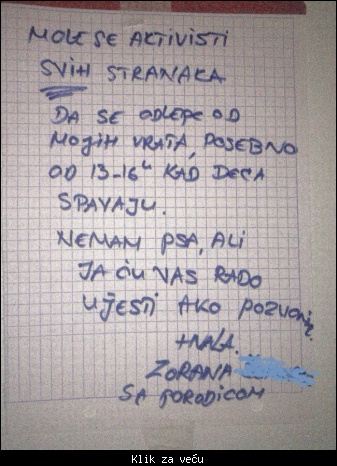 MOLE SE AKTIVISTI
SVIH STRANAKA
DA SE ODLEPE OD
MOJIH VRATA, POSEBNO
OD 13-16h KAD DECA
SPAVAJU.
NEMAM PSA, ALI
JA ĆU VAS RADO
UJESTI AKO POZVONITE.
HVALA.
ZORANA
SA PORODICOM
Klik za veću